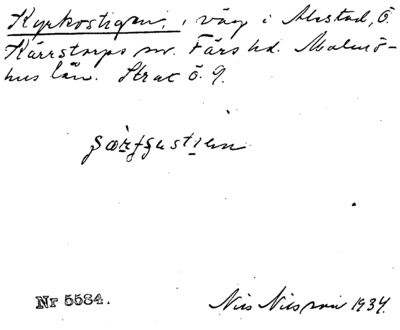 Kyrkostigen, väg i Alestad, Ö.
Kärrstorps sn. Färs hd. Malmö-
hus län. Strax ö. 9.
Nr 5584. Nils Nilsson 1934.